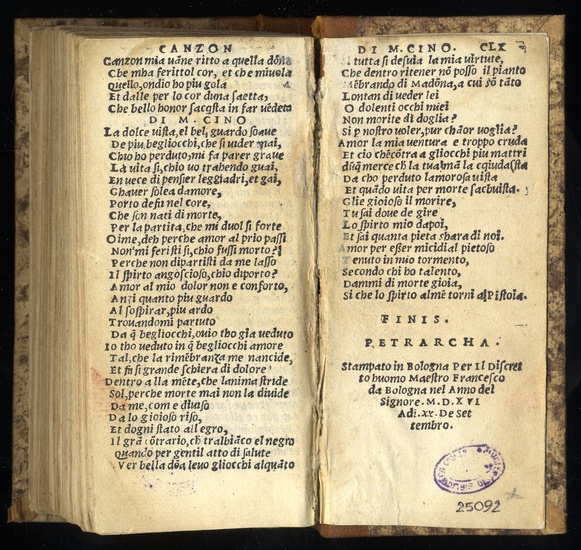 CANZON
Canzon mia uāne ritto a quella dōna
Che mha ferittol cor, et che miuola
Quello, ondio ho piu gola
Et dalle per lo cor duna saetta,
Che bello honor sacq̄sta in far uēdeta
DI M. CINO
La dolce uista, el bel, guardo soaue
De piu begliocchi, che si uider mai,
Chio ho perduto, mi fa parer graue
La uita si, chio uo trahendo guai,
En uece di pensier leggiadri, et gai,
Ghauer solea damore,
Porto desii nel core,
Che son nati di morte,
Per la partita, che mi duol si forte
Oime, deh perche amor al prio passi
Non mi feristi si, chio fussi morto?
Perche non dipartisti da me lasso
Il spirto angoscioso, chio diporto?
Amor al mio dolor non e conforto,
Anzi quanto piu guardo
Al sospirar, piu ardo
Trouandomi partuto
Da q̄ begliocchi, ouio tho gia ueduto
Io tho ueduto in q̄ begliocchi amore
Tal, che la rimēbranza me nancide,
Et fa si grande schiera di dolore
Dentro a lla mēte, che lanima stride
Sol, perche morte mai non la diuide
Da me, com e diuiso
Da lo gioioso riso,
Et dogni stato allegro,
Il grā cōtrario, ch tralbiāco el negro
Quando per gentil atto di salute
Ver bella dōa leuo gliocchi alquāto
DI M. CINO. CLX
tutta si desuia la mia uirtute,
Che dentro ritener nō posso il pianto
Mēbrando di Madōna, a cui sō tāto
Lontan di ueder lei
O dolenti occhi miei
Non morite di doglia?
Si p nostro uoler, pur chāor uoglia?
Amor la mia uentura e troppo cruda
Et cio chēcōtra a gliocchi piu mattri
dūq̄ merce ch la tua mā la cqiuda
Da cho perduto lamorosa uista
Et quādo uita per morte sacquista.
Glie gioioso il morire,
Tu sai doue de gire
Lo spirto mio dapoi,
Et sai quanta pieta shara di noi.
Amor per eßer micidial pietoso
Tenuto in mio tormento,
Secondo chi ho talento,
Dammi di morte gioia,
Si che lo spirto almē torni al Pistoia.
FINIS.
PETRARCHA.
Stampato in Bologna Per Il Discret
to huomo Maestro Francesco
da Bologna nel Anno del
Signore. M. D. XVI
Adi. xx. De Set
tembro.
25092